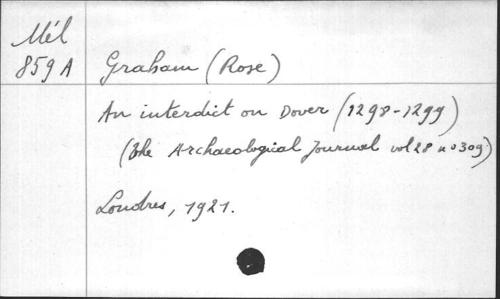 Mél
859 A
Graham (Rose)
An interdict on Dover (1298-1299)
(The Archaeological Journal vol 28 no 309)
Londres, 1921.